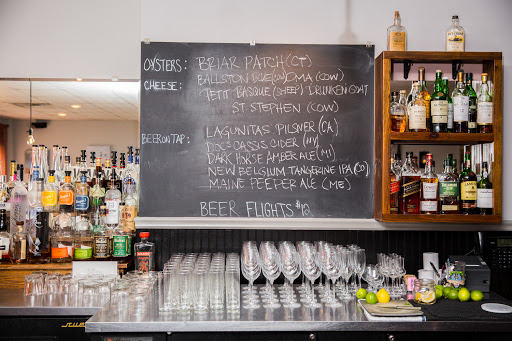 OYSTERS: BRIAR PATCH (CT)
CHEESE: BALLSTON BLUE (COW) OMA (COW)
PETIT BASQUE (SHEEP) DRUNKEN GOAT
ST STEPHEN (COW)
BEER ON TAP: LAGUNITAS PILSNER (CA)
DOC'S CASSIS CIDER (NY)
DARK HORSE AMBER ALE (MI)
NEW BELGIUM TANGERINE IPA (CO)
MAINE PEEPER ALE (ME)
BEER FLIGHTS $12